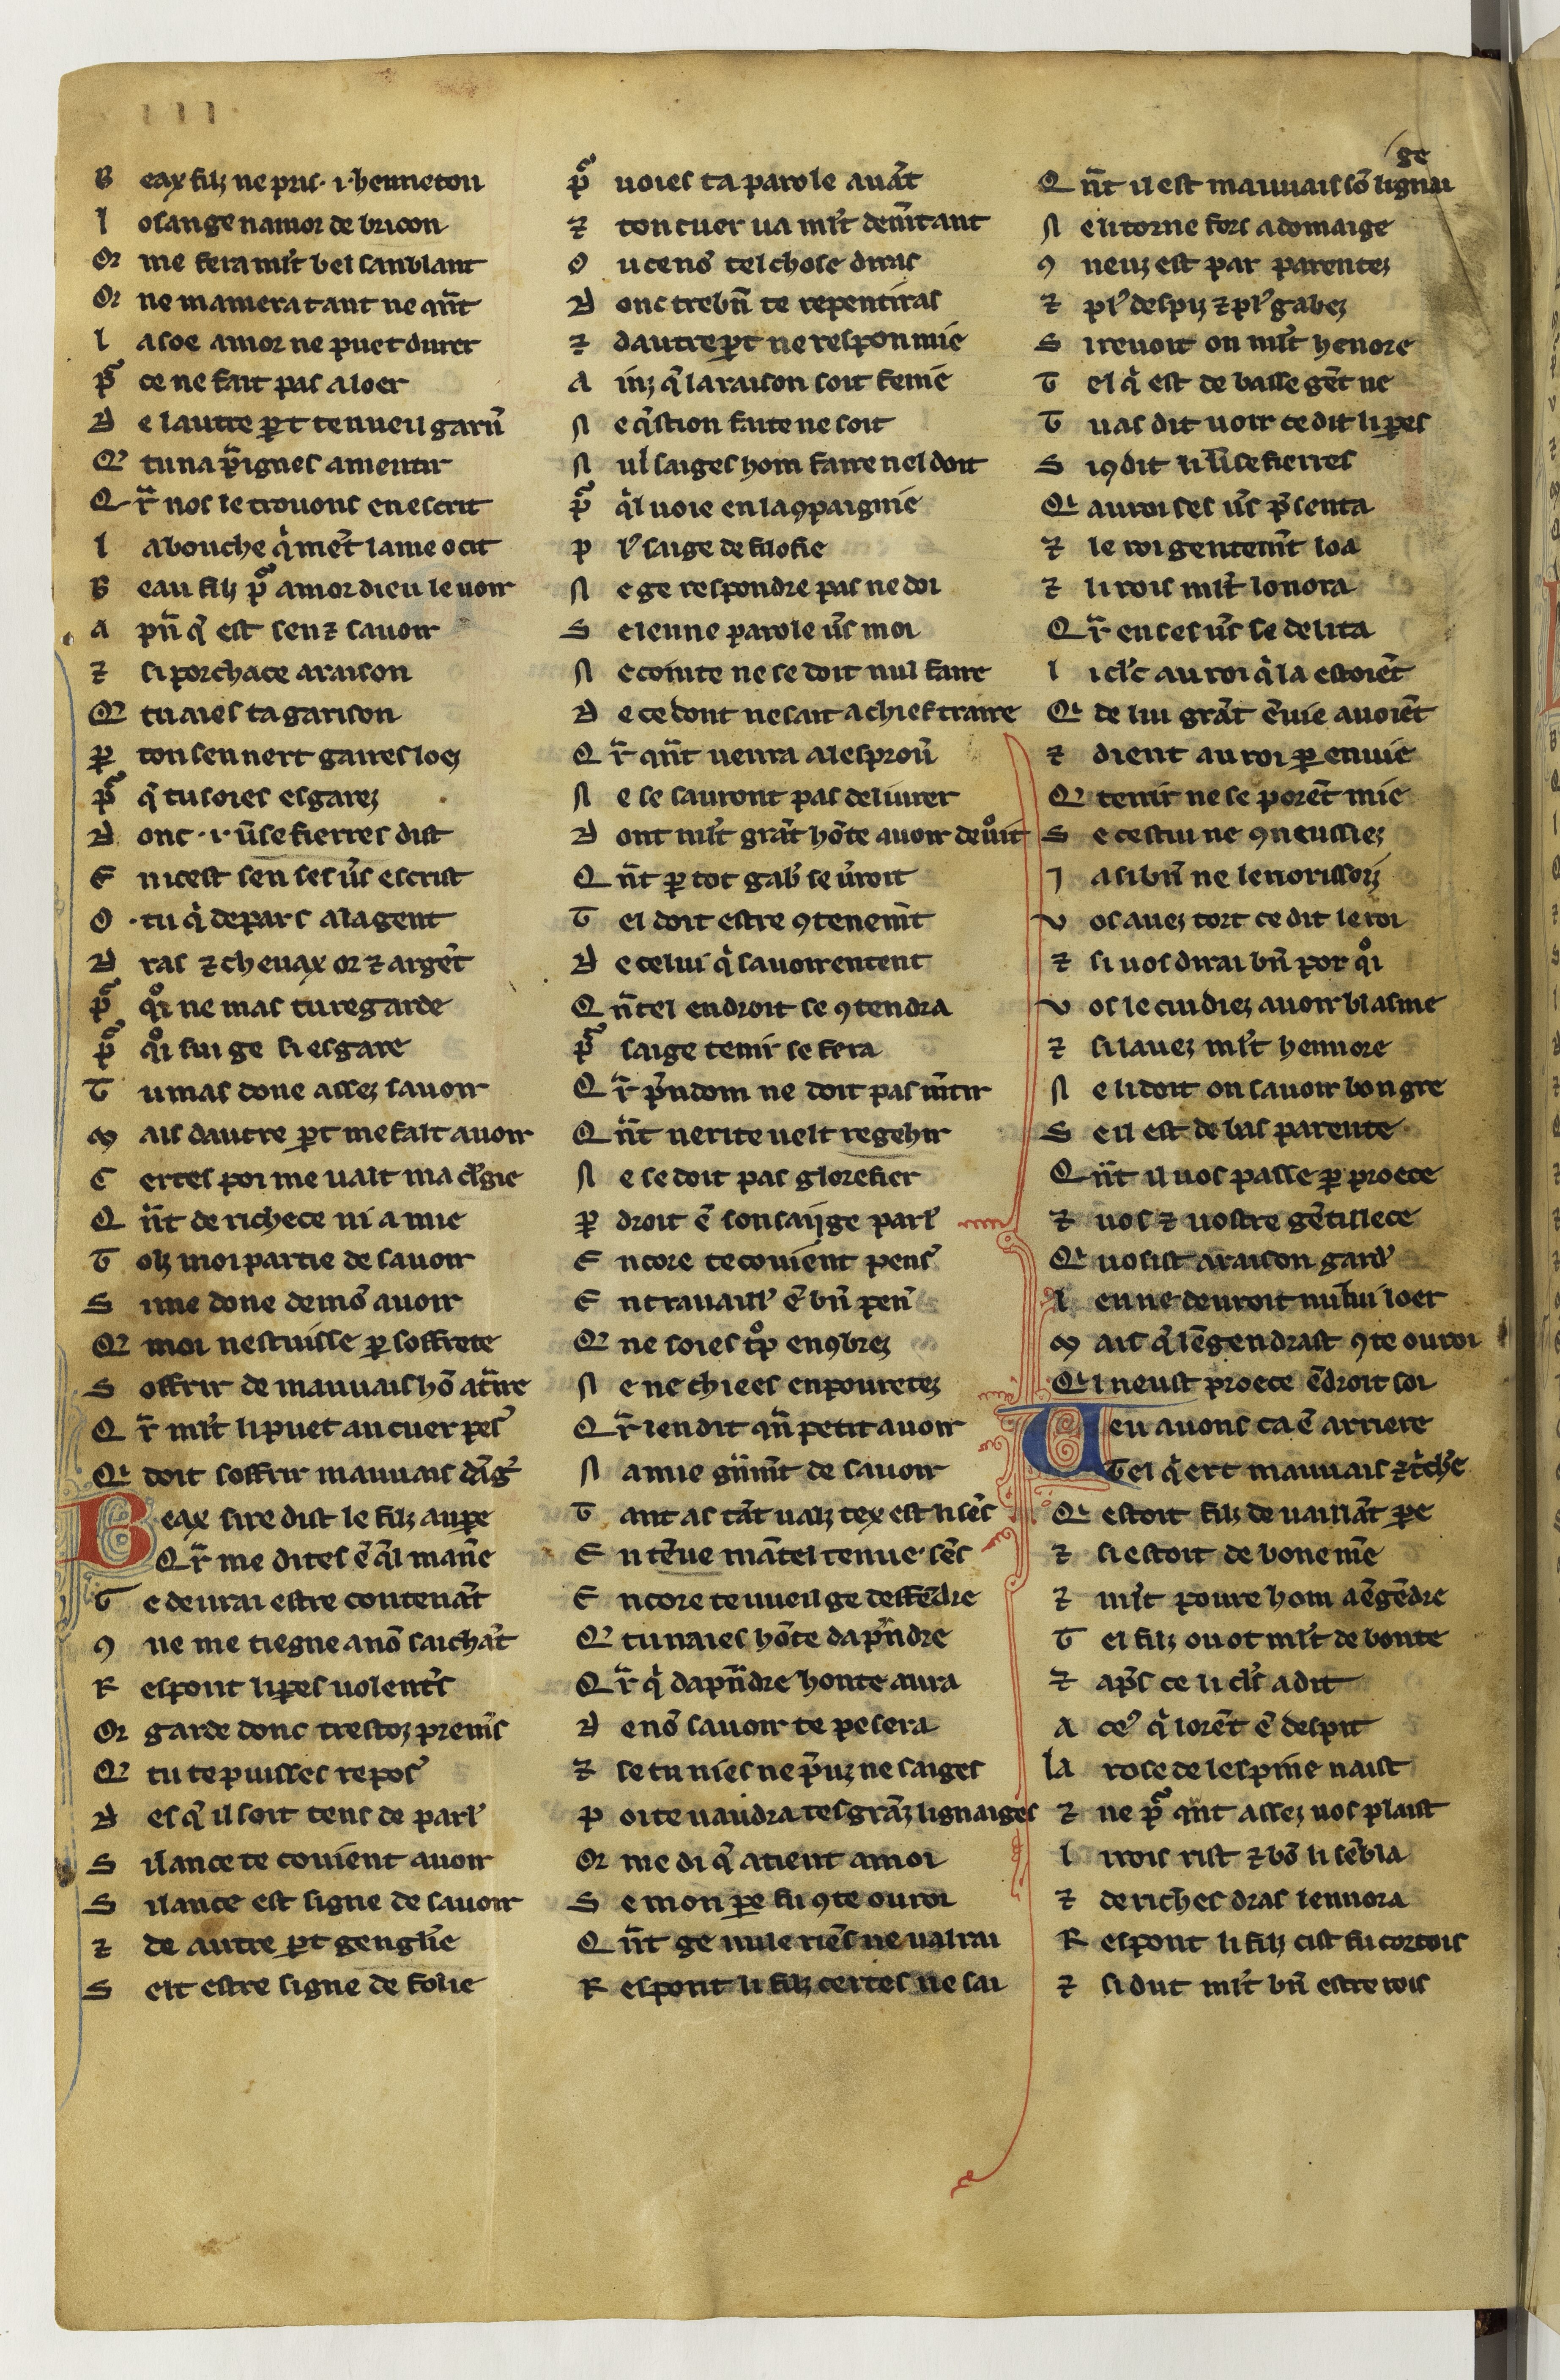 III
B eax filz ne pris .i. henneton
L osange namor de bricon
Q' me fera ml't bel sanblant
Q' ne mamera tant ne qñt
L asoe amor ne puet durer
p̃ ce ne fait pas a loer
D e lautre p̱t te vueil garñ
Q' tu na p̃ignes a mentir
Q r̃ nos le trovons en escrit
L a bouche q̍ mẽt lame ocit
B eau filz p̃ amor dieu le voir
A pñ q̃ est sen ⁊ savoir
⁊ si porchace a raison
Q' tu aies ta garison
p̱ ton sen nert gaires loez
p̃ q̃ tu soies esgarez
D onc .i. ṽsefierres dist
E nicest sen ses ṽs escrist
O .tu q̍ depars a la gent
D ras ⁊ chevax or ⁊ argẽt
p̃ qͦi ne mas tu regarde
p̃ qͦi sui ge si esgare
T u mas done assez savoir
M ais dautre p̱t me fait avoir
C ertes poi me vaut ma cl̃gie
Q ñt de richece ni a mie
T olz moi partie de savoir
S i me done de mõ avoir
Q' moi nestuisse p̱ soffrete
S offrir de mauvais hõ at̃ire
Q r̃ ml't li puet au cuer pes̃
Q' doit soffrir mauvais dãg̃
B eax sire dist le filz au p̱e
Q r̃ me dites ẽ q̃l mañe
T e devrai estre contenãt
9 ne me tiegne a nõ saichãt
R espont li p̱es volent̃s
Q' garde donc trestoz premĩs
Q' tu te puisses repos̃
D es q̃ il soit tens de parl̃
S ilance te covient avoir
S ilance est signe de savoir
⁊ de autre p̱t genglĩe
S elt estre signe de folie
p̃ voies ta parole avãt
⁊ ton cuer va ml't dem̃tant
O u cenõ tel chose diras
D onc trebñ te repentiras
⁊ dautre p̱t ne respon mie
A inz q̃ la raison soit fenie
N e q̃stion faite ne soit
N ul saiges hom faire nel doit
p̃ q̃l voie en la 9paignie
p l̃ saige de filofie
N e ge respondre pas ne doi
S elenne parole ṽs moi
N e cointe ne se doit nul faire
D e ce dont ne sait a chief traire
Q r̃ qñt venra a lesproṽ
N e se sauront pas delivrer
D ont ml't grãt hõte avoir devoit
Q ñt p̱ tot gab̃ se ṽroit
T el doit estre 9tenem̃t
D e celui q̍ savoir entent
Q ñ tel endroit se 9tendra
p̃ saige tenir se fera
Q r̃ p̃udom ne doit pas m̃tir
Q ñt verite velt regehir
N e se doit pas glorefier
p̱ droit ẽ son saijge parl̃
E ncore te covient pens̃
E n travaill̃ ẽ bñ pen̄
Q' ne soies tͦp en9brez
N e ne chiees en povretez
Q r̃ len dit qñ petit avoir
N a mie gñim̃t de savoir
T ant as tãt valz tex est li sẽs
E n tẽve mãtel tenve sẽs
E ncore te vueil ge deffẽdre
Q' tu naies hõte dap̃ndre
Q r̃ q̍ dap̃ndre honte aura
D e nõ savoir te pesera
⁊ se tu nies ne p̃uz ne saiges
p oi te vaudra tes grãz lignaiges
Q' me di q̃ atient a moi
S e mon p̱e fu 9te ou roi
Q ñt ge nule riẽs ne valrai
R espont li filz certes ne sai
Q ñt il est mauvais sõ lignai
ge
N e li torne fors a domaige
9 neuz est par parentez
⁊ pl̃ despiz ⁊ pl̃ gabez
S i revoit on ml't henore
T el q̍ est de basse gẽt ne
T u as dit voir ce dit li p̱es
S i9 dit li ṽsefierres
Q' au roi ses ṽs p̃senta
⁊ le roi gentem̃t loa
⁊ li rois ml't lonora
Q r̃ en ses ṽs se delita
L i cl̃c au roi q̍ la estoiẽt
Q' de lui grãt ẽvie avoiẽt
⁊ dient au roi p̱ envie
Q' tenir ne se porẽt mie
S e cestui ne 9neussiez
J a si bñ ne lenorissoiz
V os avez tort ce dit le roi
⁊ si vos dirai bñ por qͦi
V os le cuidiez avoir blasme
⁊ si lavez ml't hennore
N e li doit on savoir bon gre
S e il est de bas parente
Q ñt il vos passe p̱ proece
⁊ vos ⁊ vostre gẽtillece
Q' vosist a raison gard̃
L en ne devroit nului loer
M ais q̃ lẽgendrast 9te ou roi
Q' i neust proece ẽdroit soi
V eu avons ca ẽ arriere
T el q̍ ert mauvais ⁊ t̃ch̃e
Q' estoit filz de vaillãt p̱e
⁊ si estoit de bone m̃e
⁊ ml't povre hom aẽgẽdre
T el filz ou ot ml't de bonte
⁊ ap̃s ce li cl̃s a dit
A ce' q̍ lorẽt ẽ despit
la rose de lespine naist
⁊ ne p̃ qñt assez vos plaist
L i rois rist ⁊ bõ li sẽbla
⁊ de riches dras lennora
R espont li filz cist fu cortois
⁊ si dut ml't bñ estre rois